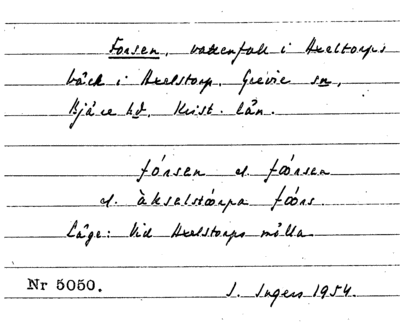 Forsen, vattenfall i Axeltorps
bäck i Axelstorp, Grevie sn,
Bjäre hd, Krist. län.
fórsen el. fóorsen
el. àkselstóorpa fóors.
Läge: Vid Axelstorps mölla
Nr 5050.
I. Ingers 1954.